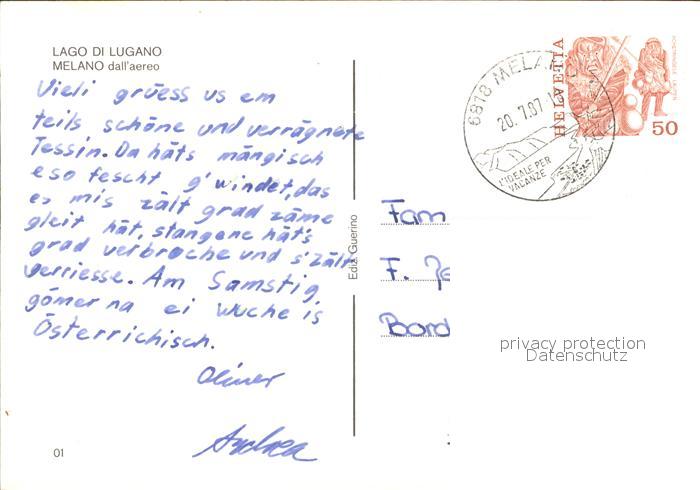 LAGO DI LUGANO
MELANO dall'aereo
Vieli grüess us em
teils schöne und verrägnete
Tessin. Da häts mängisch
eso fescht g'windet, das
es mis zält grad zäme
gleit hät, stangene hät's
grad verbroche und s'zält
verriesse. Am Samstig
gömer na ei wuche is
Österrichisch.
Oliver
Andrea
01
Ediz. Guerino
6818 MELA
20. 7.87-1
L'IDEALE PER
VACANZE
HELVETIA
50
Fam
F.
Bord
privacy protection
Datenschutz